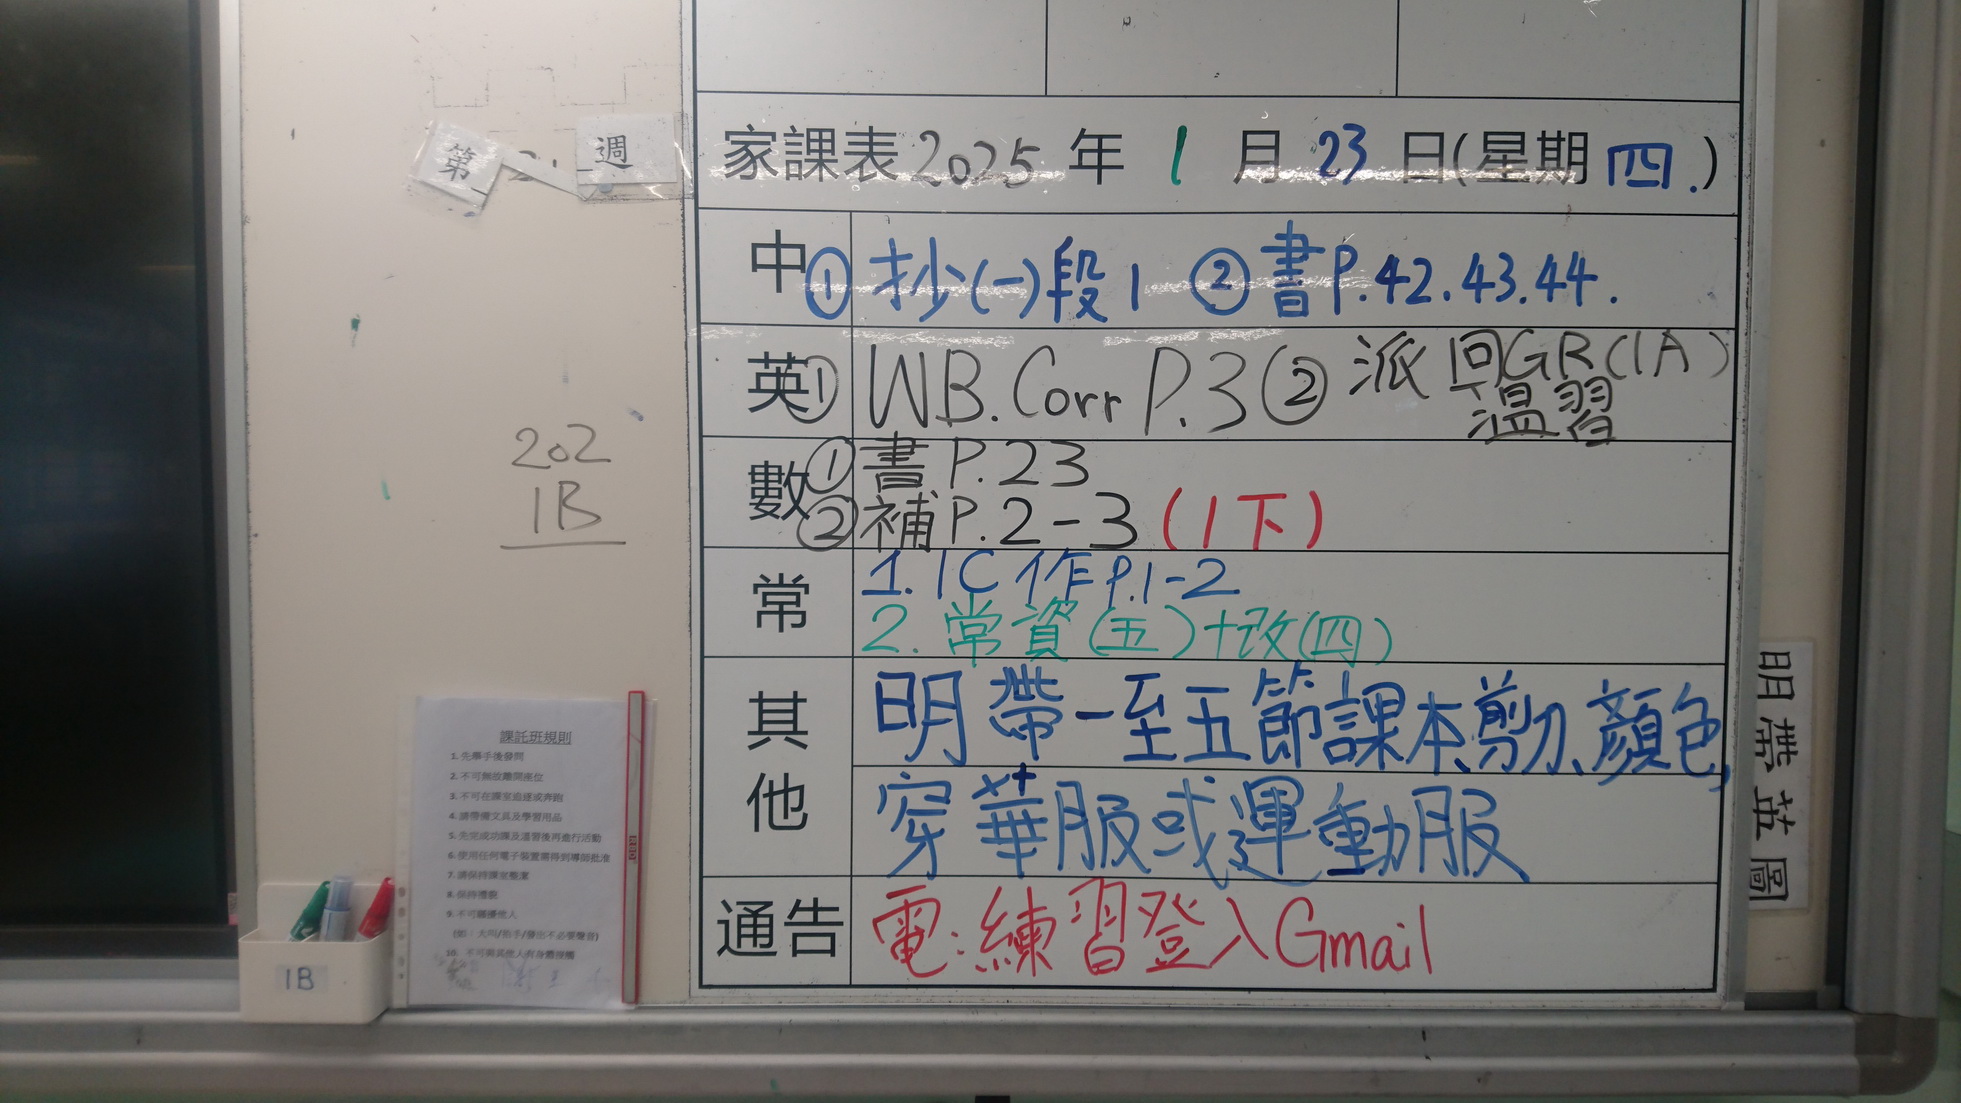 第 週
家課表 2025 年 1 月 23 日(星期 四.)
中 ① 抄(一)段1 ② 書P.42.43.44.
英 ① WB.Corr P.3 ② 派回GR(1A)
溫習
數 ① 書 P.23
② 補P.2-3 (1下)
常 1. 1C 作P.1-2
2. 常資(五)+改(四)
其他 明帶一至五節課本、剪刀、顏色,
穿華服或運動服
通告 電:練習登入Gmail
202
1B
課託班規則
1. 先舉手後發問
2. 不可無故離開座位
3. 不可在課室追逐或奔跑
4. 請帶備文具及學習用品
5. 先完成功課及溫習後再進行活動
6. 使用任何電子裝置需得到導師批准
7. 請保持課室整潔
8. 保持禮貌
9. 不可騷擾他人
(如：大叫/拍手/發出不必要聲音)
10. 不可與其他人有身體接觸
1B
明帶英圖